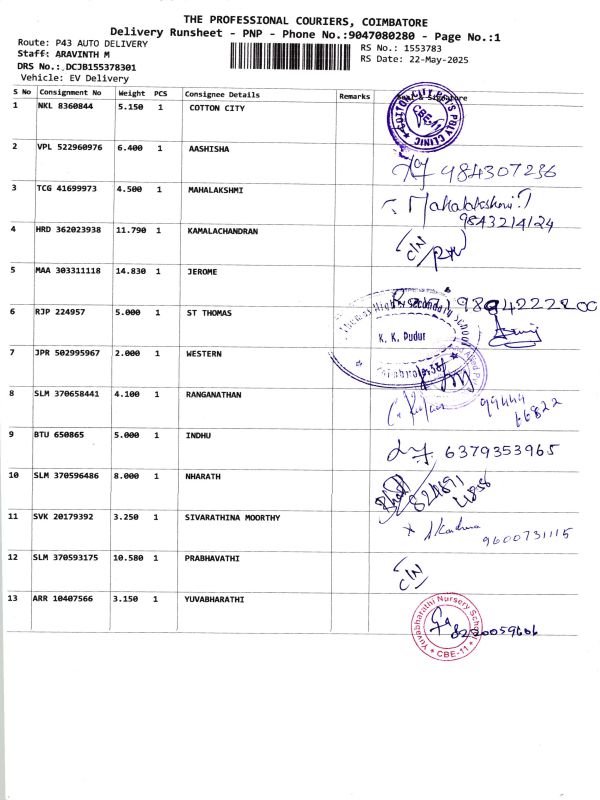 THE PROFESSIONAL COURIERS, COIMBATORE
Delivery Runsheet - PNP - Phone No.:9047080280 - Page No.:1
Route: P43 AUTO DELIVERY
RS No.: 1553783
Staff: ARAVINTH M
RS Date: 22-May-2025
DRS No.: DCJB155378301
Vehicle: EV Delivery
S No Consignment No Weight PCS Consignee Details Remarks
1 NKL 8360844 5.150 1 COTTON CITY
CBE-11
2 VPL 522960976 6.400 1 AASHISHA
984307236
3 TCG 41699973 4.500 1 MAHALAKSHMI Mahalakshmi.T
9843214124
4 HRD 362023938 11.790 1 KAMALACHANDRAN C/N
5 MAA 303311118 14.830 1 JEROME
6 RJP 224957 5.000 1 ST THOMAS
K. K. Pudur
7 JPR 502995967 2.000 1 WESTERN
8 SLM 370658441 4.100 1 RANGANATHAN 99444
66822
9 BTU 650865 5.000 1 INDHU 6379353965
10 SLM 370596486 8.000 1 NHARATH
11 SVK 20179392 3.250 1 SIVARATHINA MOORTHY
9600731115
12 SLM 370593175 10.580 1 PRABHAVATHI C/N
13 ARR 10407566 3.150 1 YUVABHARATHI
Yuvabharathi Nursery School
8220059606
CBE-11